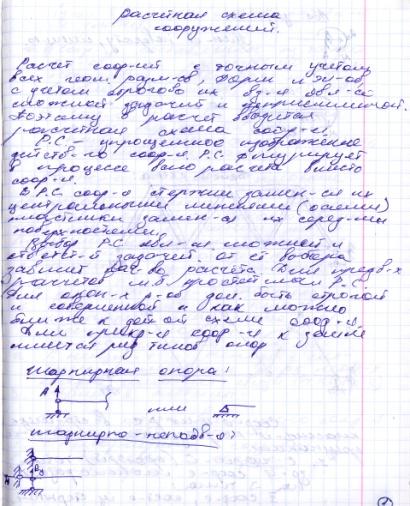 Расчётная схема
сооружений.
Расчет соор-ий с точным учетом
всех геом. разм-ов, форм и эл-ов
с учетом строгого их вз-я явл-ся
сложной задачей и
Поэтому в расчет вводится
расчетная схема соор-я.
Р.С. - упрощенное изображение
действ-го соор-я. Р.С. фигурирует
в процессе всего расчета вместо
соор-я.
В Р.С. соор-я стержни замен-ся их
центральными линиями (осями)
пластинки замен-ся их серед-ми
поверхностями.
Выбор Р.С. явл-ся сложной и
ответ-й задачей, от её выбора
зависит кач-во расчета. Для предв-х
расчетов м.б. простейшая Р.С.
Для окон-х р-ов дол. быть строгой
и совершенной и как можно
ближе к дейст-й схеме соор-я.
Для соор-я к земле
имеется ряд типов опор
Шарнирная опора:
А или
Шарнирно-неподв-я: